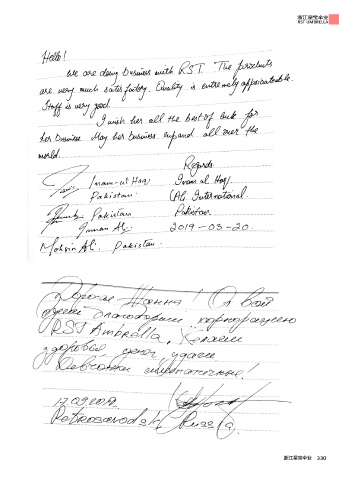 浙江荣世伞业
RST UMBRELLA
Hello!
We are doing business with RST. The products
are very much satisfactory. Quality is extremely appreciateable.
Staff is very good.
I wish her all the best of luck for
her business. May her business expand all over the
world.
Regards
Inam-ul Haq Inam ul Haq.
Pakistan. Ali International.
Pakistan Pakistan
Ali. 2019-03-20.
Mohsin Ali. Pakistan.
Дорогая Жанна!
RST Ambrella, Желаем
здоровья удачи
Девчонки симпатичные!
Petrosavodsk Russia.
浙江荣世伞业 330